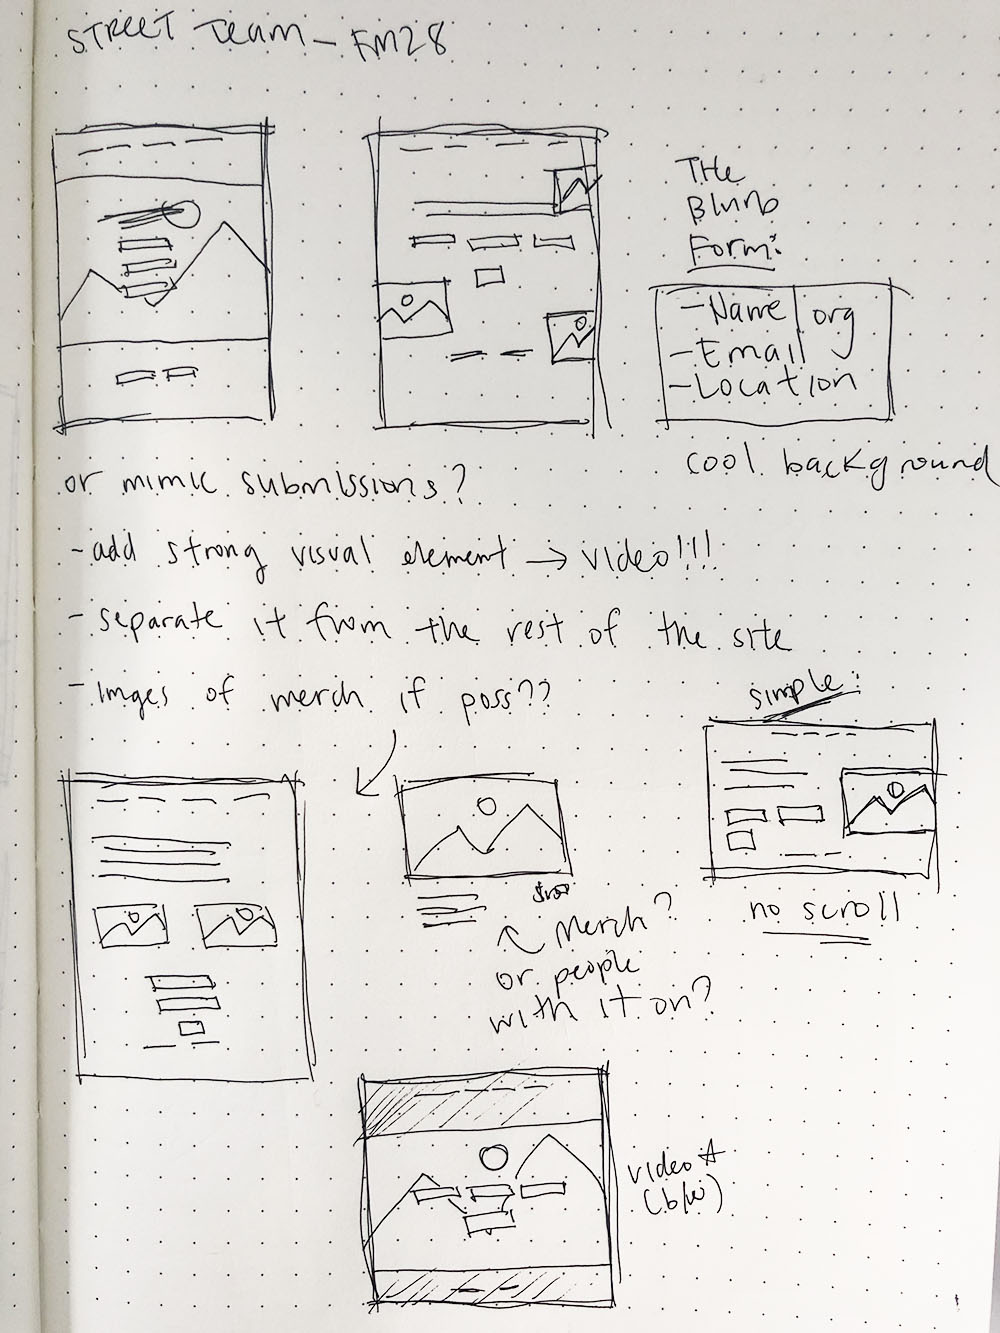 STREET Team - FM28
THE
Blurb
Form:
- Name / org
- Email
- Location
cool background
or mimic submissions?
- add strong visual element → video!!!
- separate it from the rest of the site
- Imges of merch if poss??
simple:
no scroll
Merch?
or people
with it on?
video
(b/w)